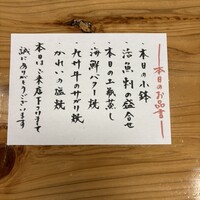 本日のお品書
・本日の小鉢
・活魚刺の盛合せ
・本日の土瓶蒸し
・海鮮バター焼
・九州牛のサガリ焼
・かれいの塩焼
本日はご来店下さりまして
誠にありがとうございます